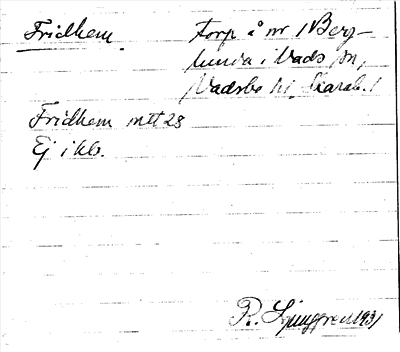 Fridhem. Torp å nr 1 Berg-
lunda i Vads sn,
Vadsbo hd, Skarab. l
Fridhem mtt 28
Ej i kb.
R. Ljunggren 1931